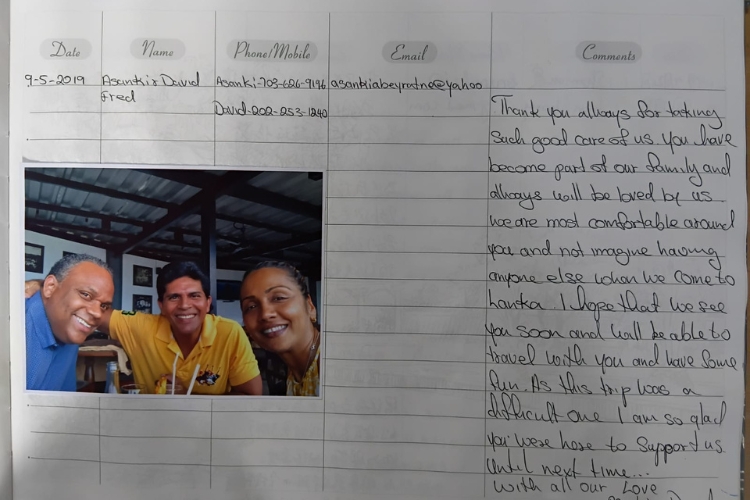 Date Name Phone/Mobile Email Comments
9-5-2019 Asanki & David Asanki-703-626-9196 asankiabeyratne@yahoo
Fred
David-202-253-1240
Thank you allways for taking
Such good care of us. You have
become part of our family and
allways will be loved by us.
we are most comfortable around
you and not imagine having
anyone else when we come to
Lanka. I hope that we see
you soon and will be able to
travel with you and have some
fun. As this trip was a
difficult one I am so glad
you were here to support us.
Until next time...
with all our Love